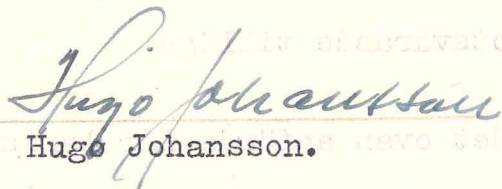 Hugo Johansson
Hugo Johansson.